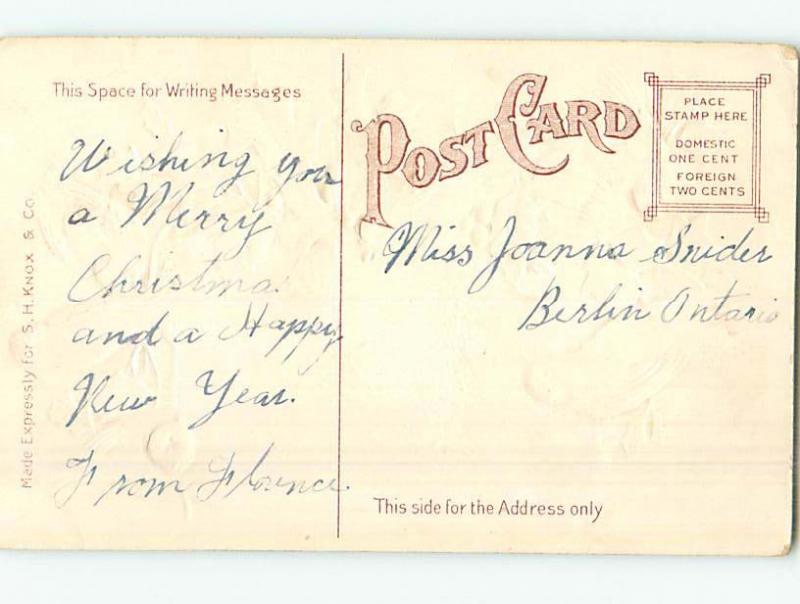 This Space for Writing Messages
Wishing you
a Merry
Christma
and a Happy
New Year.
From Florence.
Made Expressly for S. H. KNOX & Co.
POST CARD
PLACE
STAMP HERE
DOMESTIC
ONE CENT
FOREIGN
TWO CENTS
Miss Joanna Snider
Berlin Ontario
This side for the Address only